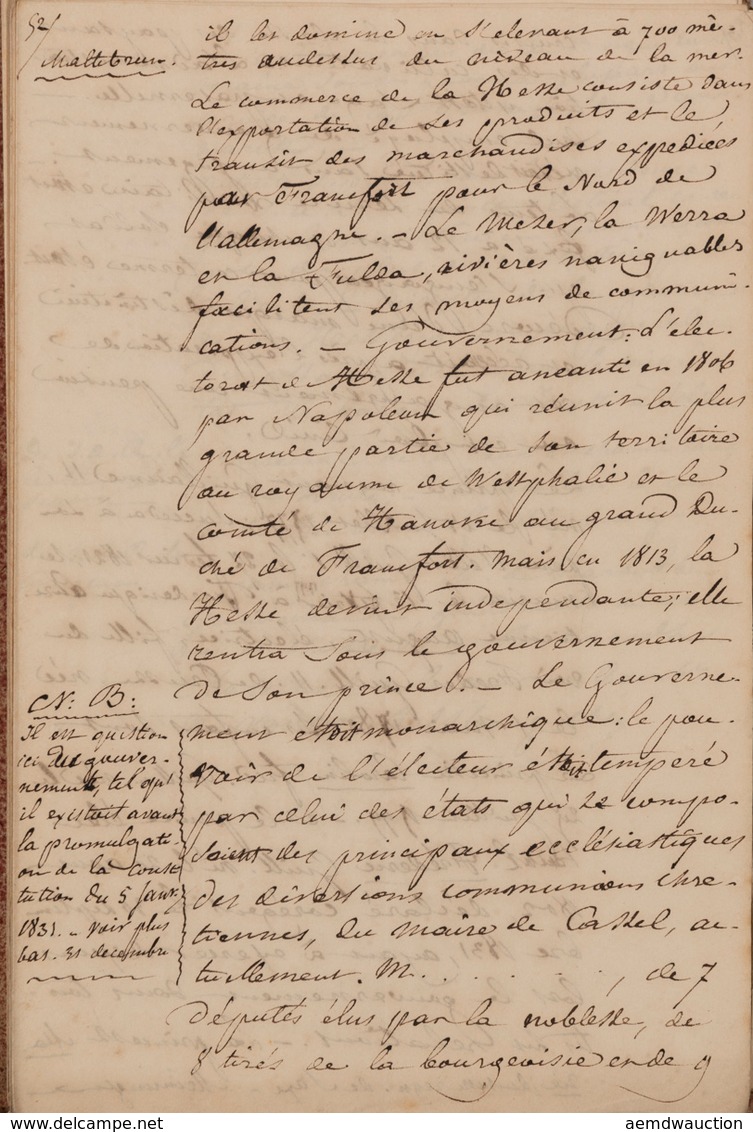 52/
Maltebrun.
il les domine en s'elevant à 700 mè-
tres audessus du niveau de la mer.
Le commerce de la Hesse consiste dans
l'exportation de ses produits et le
transit des marchandises expediées
par Francfort pour le Nord de
l'allemagne. - Le Weser, la Werra
et la Fulda, rivières naviguables
facilitent ses moyens de communi-
cations. - Gouvernement: L'elec-
torat de Hesse fut aneanti en 1806
par Napoleon qui réunit la plus
grande partie de son territoire
au royaume de Westphalie et le
comté de Hanovre au grand Du-
ché de Francfort. mais en 1813, la
Hesse devint independante; elle
rentra sous le gouvernement
de son prince. - Le Gouverne-
ment étoit monarchique: le pou-
voir de l'électeur étoit temperé
par celui des états qui se compo-
soient des principaux ecclésiastiques
des diverses communions chre-
tiennes, du maire de Cassel, ac-
tuellement. M. . . . . . . , de 7
députés élus par la noblesse, de
8 tirés de la bourgeoisie et de 9
N. B:
Il est question
ici du gouver-
nement, tel qu'
il existoit avant
la promulgati-
on de la consti
tution du 5 Janv.
1831. - voir plus
bas. 31 decembre
aemdwauction